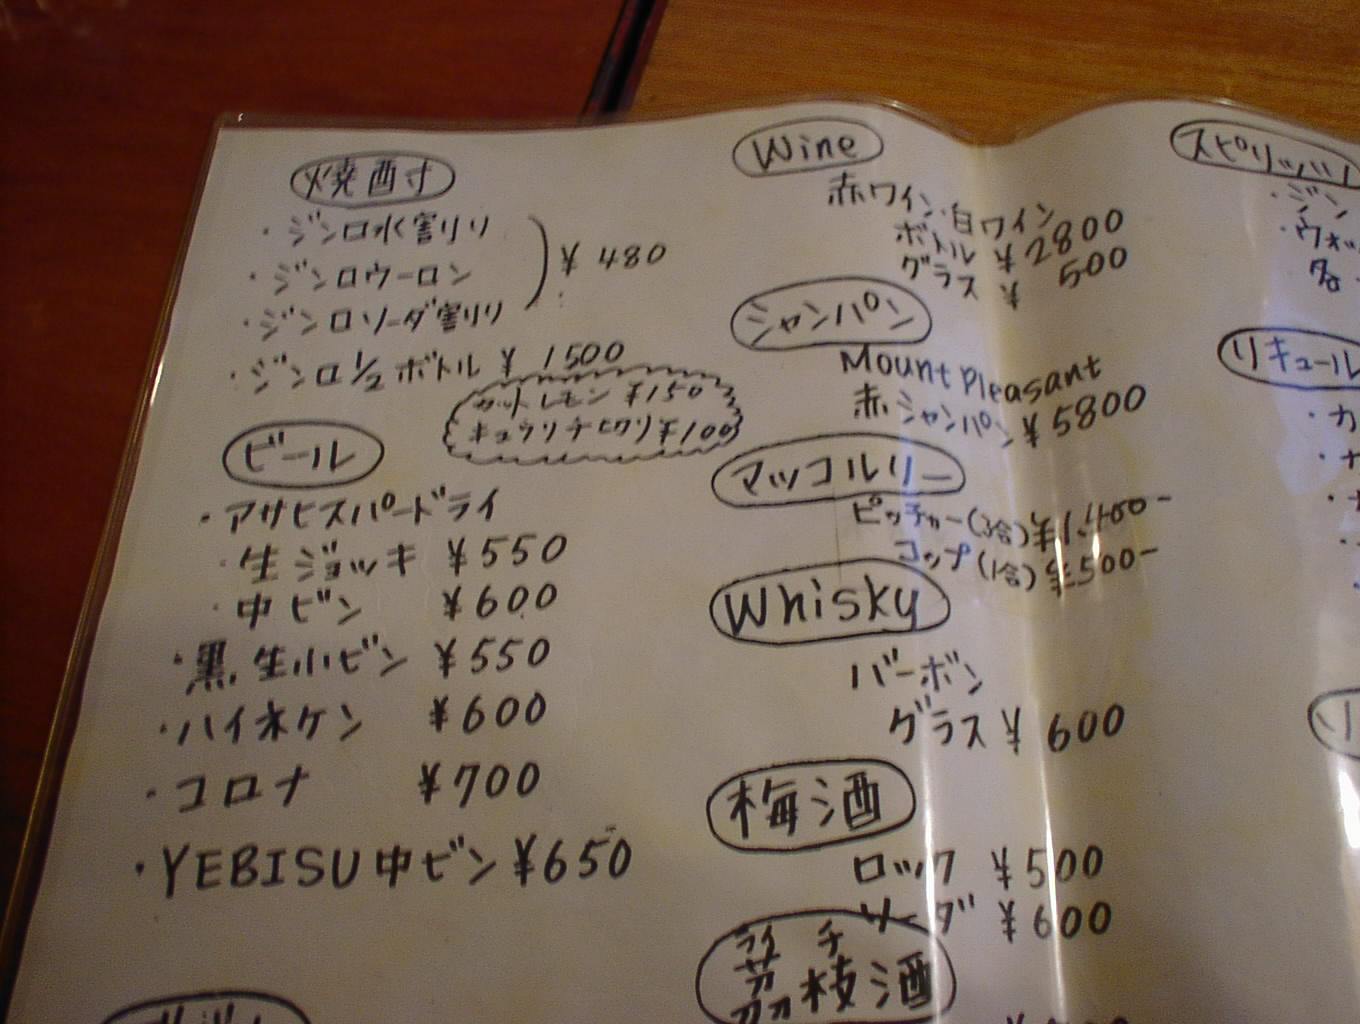 焼酎
・ジンロ水割り
・ジンロウーロン
・ジンロソーダ割り
¥480
・ジンロ1/2ボトル ¥1500
カットレモン ¥150
キュウリチビクリ ¥100
ビール
・アサヒスパードライ
・生ジョッキ ¥550
・中ビン ¥600
・黒生小ビン ¥550
・ハイネケン ¥600
・コロナ ¥700
・YEBISU中ビン ¥650
Wine
赤ワイン・白ワイン
ボトル ¥2800
グラス ¥500
シャンパン
Mount Pleasant
赤シャンパン ¥5800
マッコルリー
ピッチャー(3合) ¥1,400-
コップ(1合) ¥500-
Whisky
バーボン
グラス ¥600
梅酒
ロック ¥500
ソーダ ¥600
ライチ
茘枝酒
スピリッツ
・ジン
・ウォッ
各
リキュール
・カ